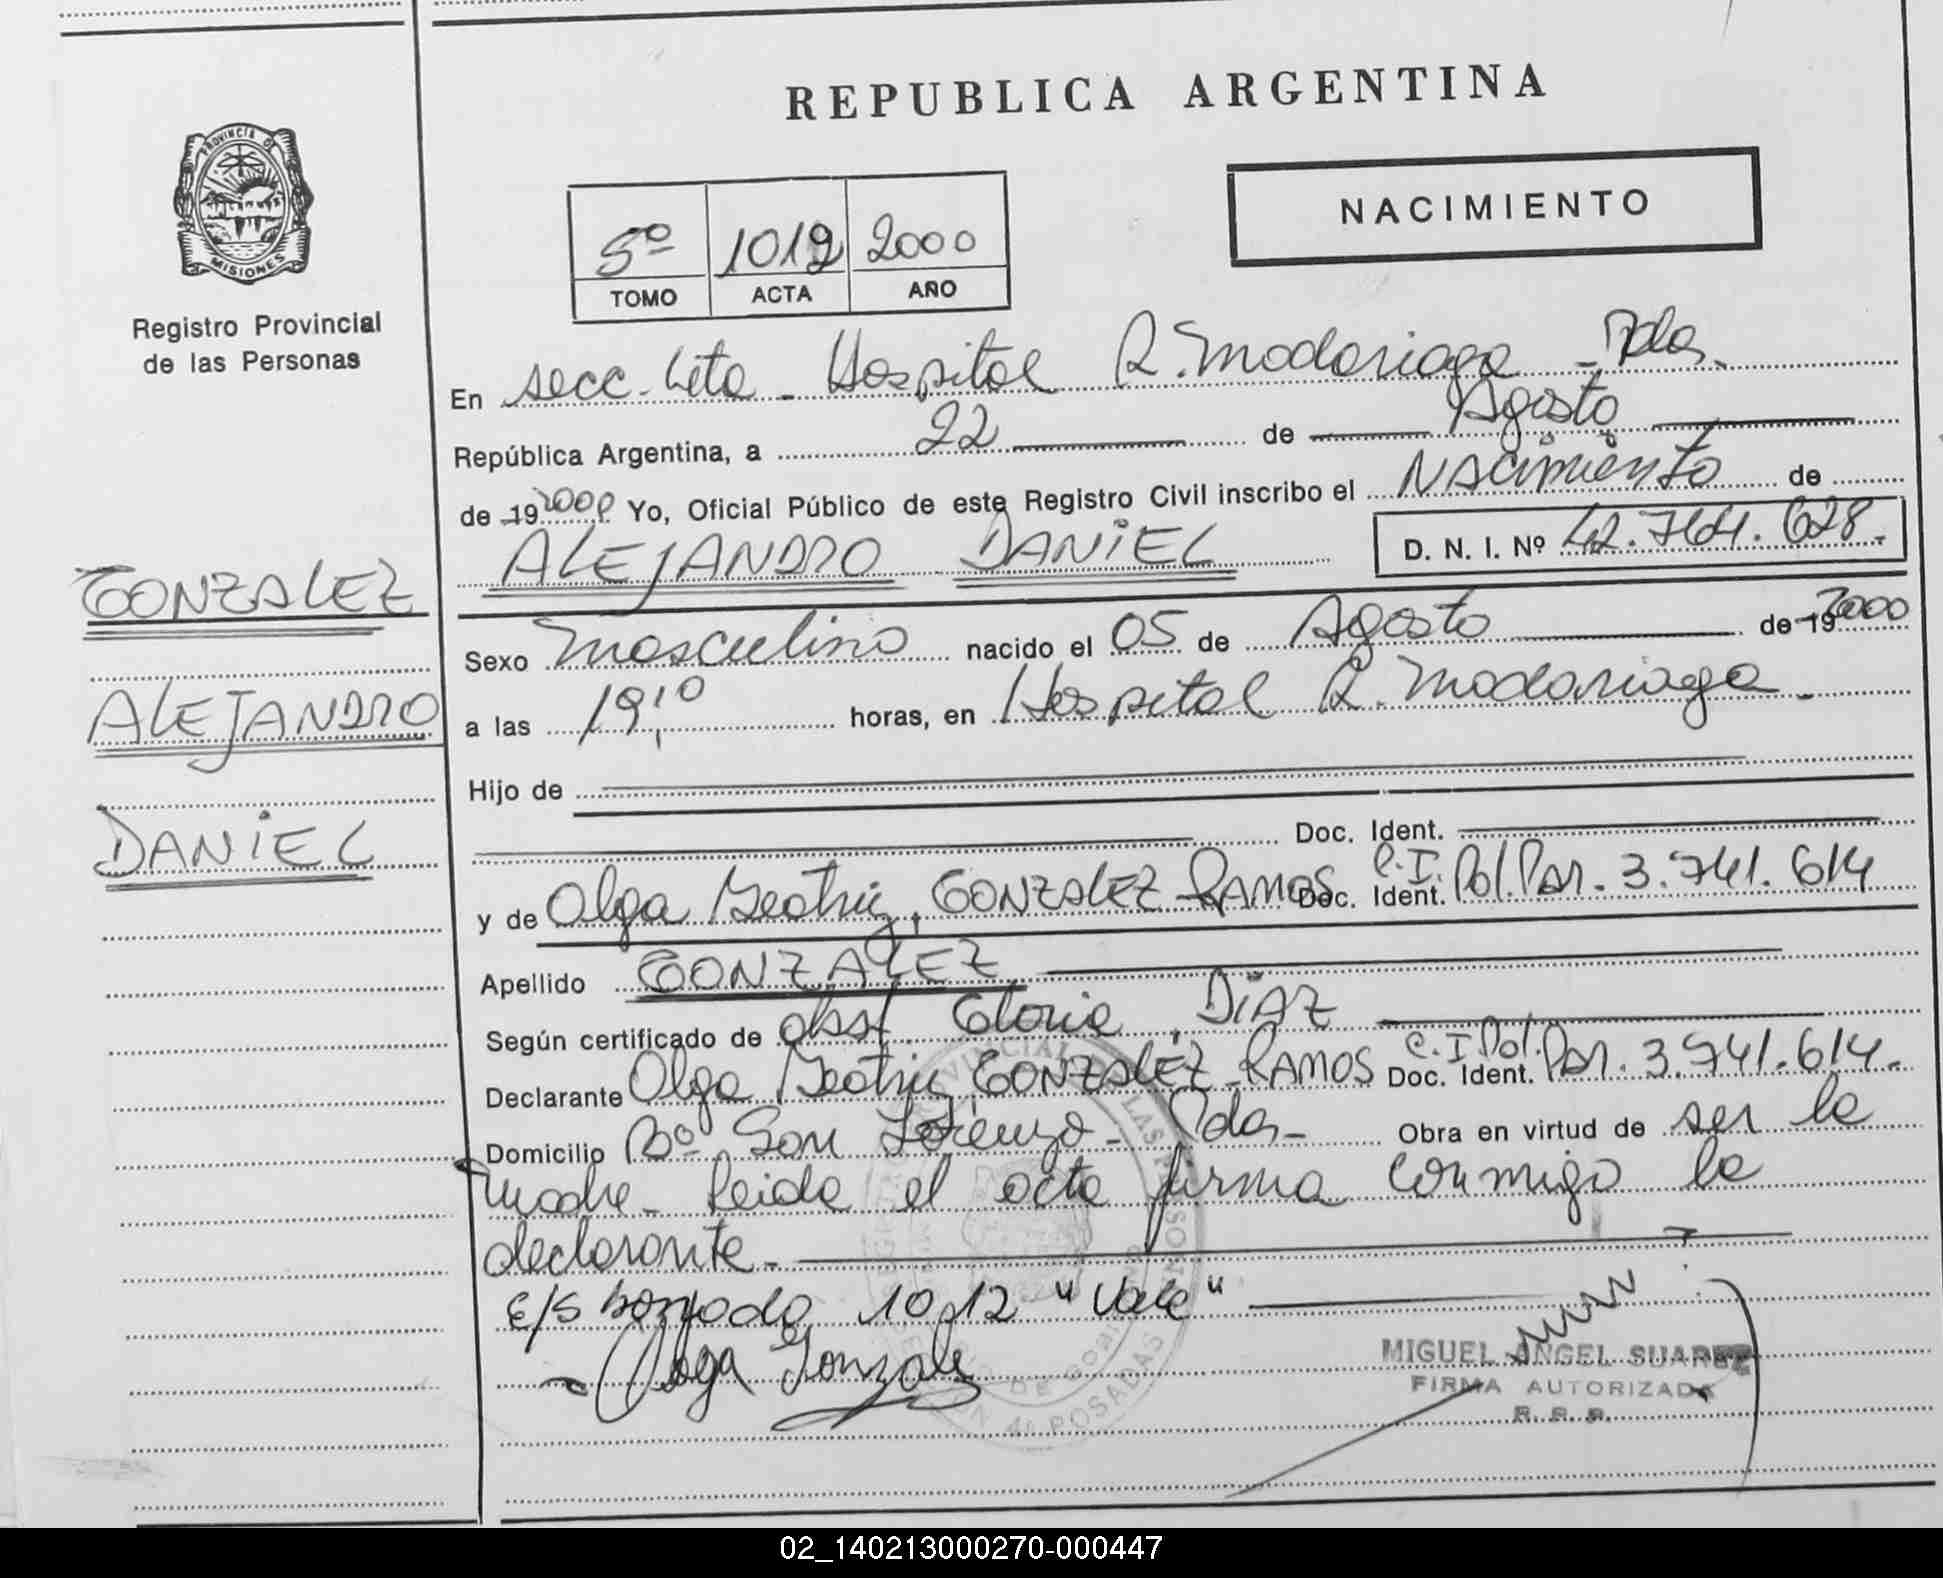 REPUBLICA ARGENTINA
PROVINCIA DE
MISIONES
Registro Provincial
de las Personas
5º 1012 2000
TOMO ACTA AÑO
NACIMIENTO
En secc. 4ta - Hospital R. Madariaga - Pdas.
República Argentina, a 22 de Agosto
de 19 2000 Yo, Oficial Público de este Registro Civil inscribo el NACimiento de
ALEJANDRO DANiEL D. N. I. Nº 42.764.628.
GONZALEZ
ALEJANDRO
DANiEL
Sexo Masculino nacido el 05 de Agosto de 19 2000
a las 19,10 horas, en Hospital R. Madariaga -
Hijo de
Doc. Ident.
y de Olga Beatriz, GONZALEZ RAMOS Doc. Ident. C.I. Pol. Par. 3.741.614
Apellido GONZALEZ
Según certificado de obst. Gloria, DiAZ
Declarante Olga Beatriz GONZALEZ RAMOS Doc. Ident. C.I Pol. Par. 3.741.614.
Domicilio Bº San Lorenzo - Pdas - Obra en virtud de ser la
madre - Leida el acta firma conmigo la
declarante -
E/S borrado 1012 "Vale"
Olga Gonzalez
MIGUEL ANGEL SUAREZ
FIRMA AUTORIZADA
R. P. P.
02_140213000270-000447